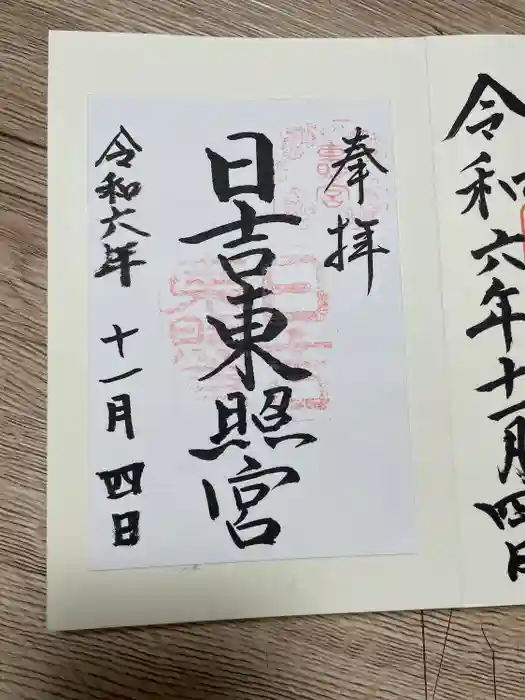 令和六年十一月四日
奉拝
日吉東照宮
令和六年 十一月 四日